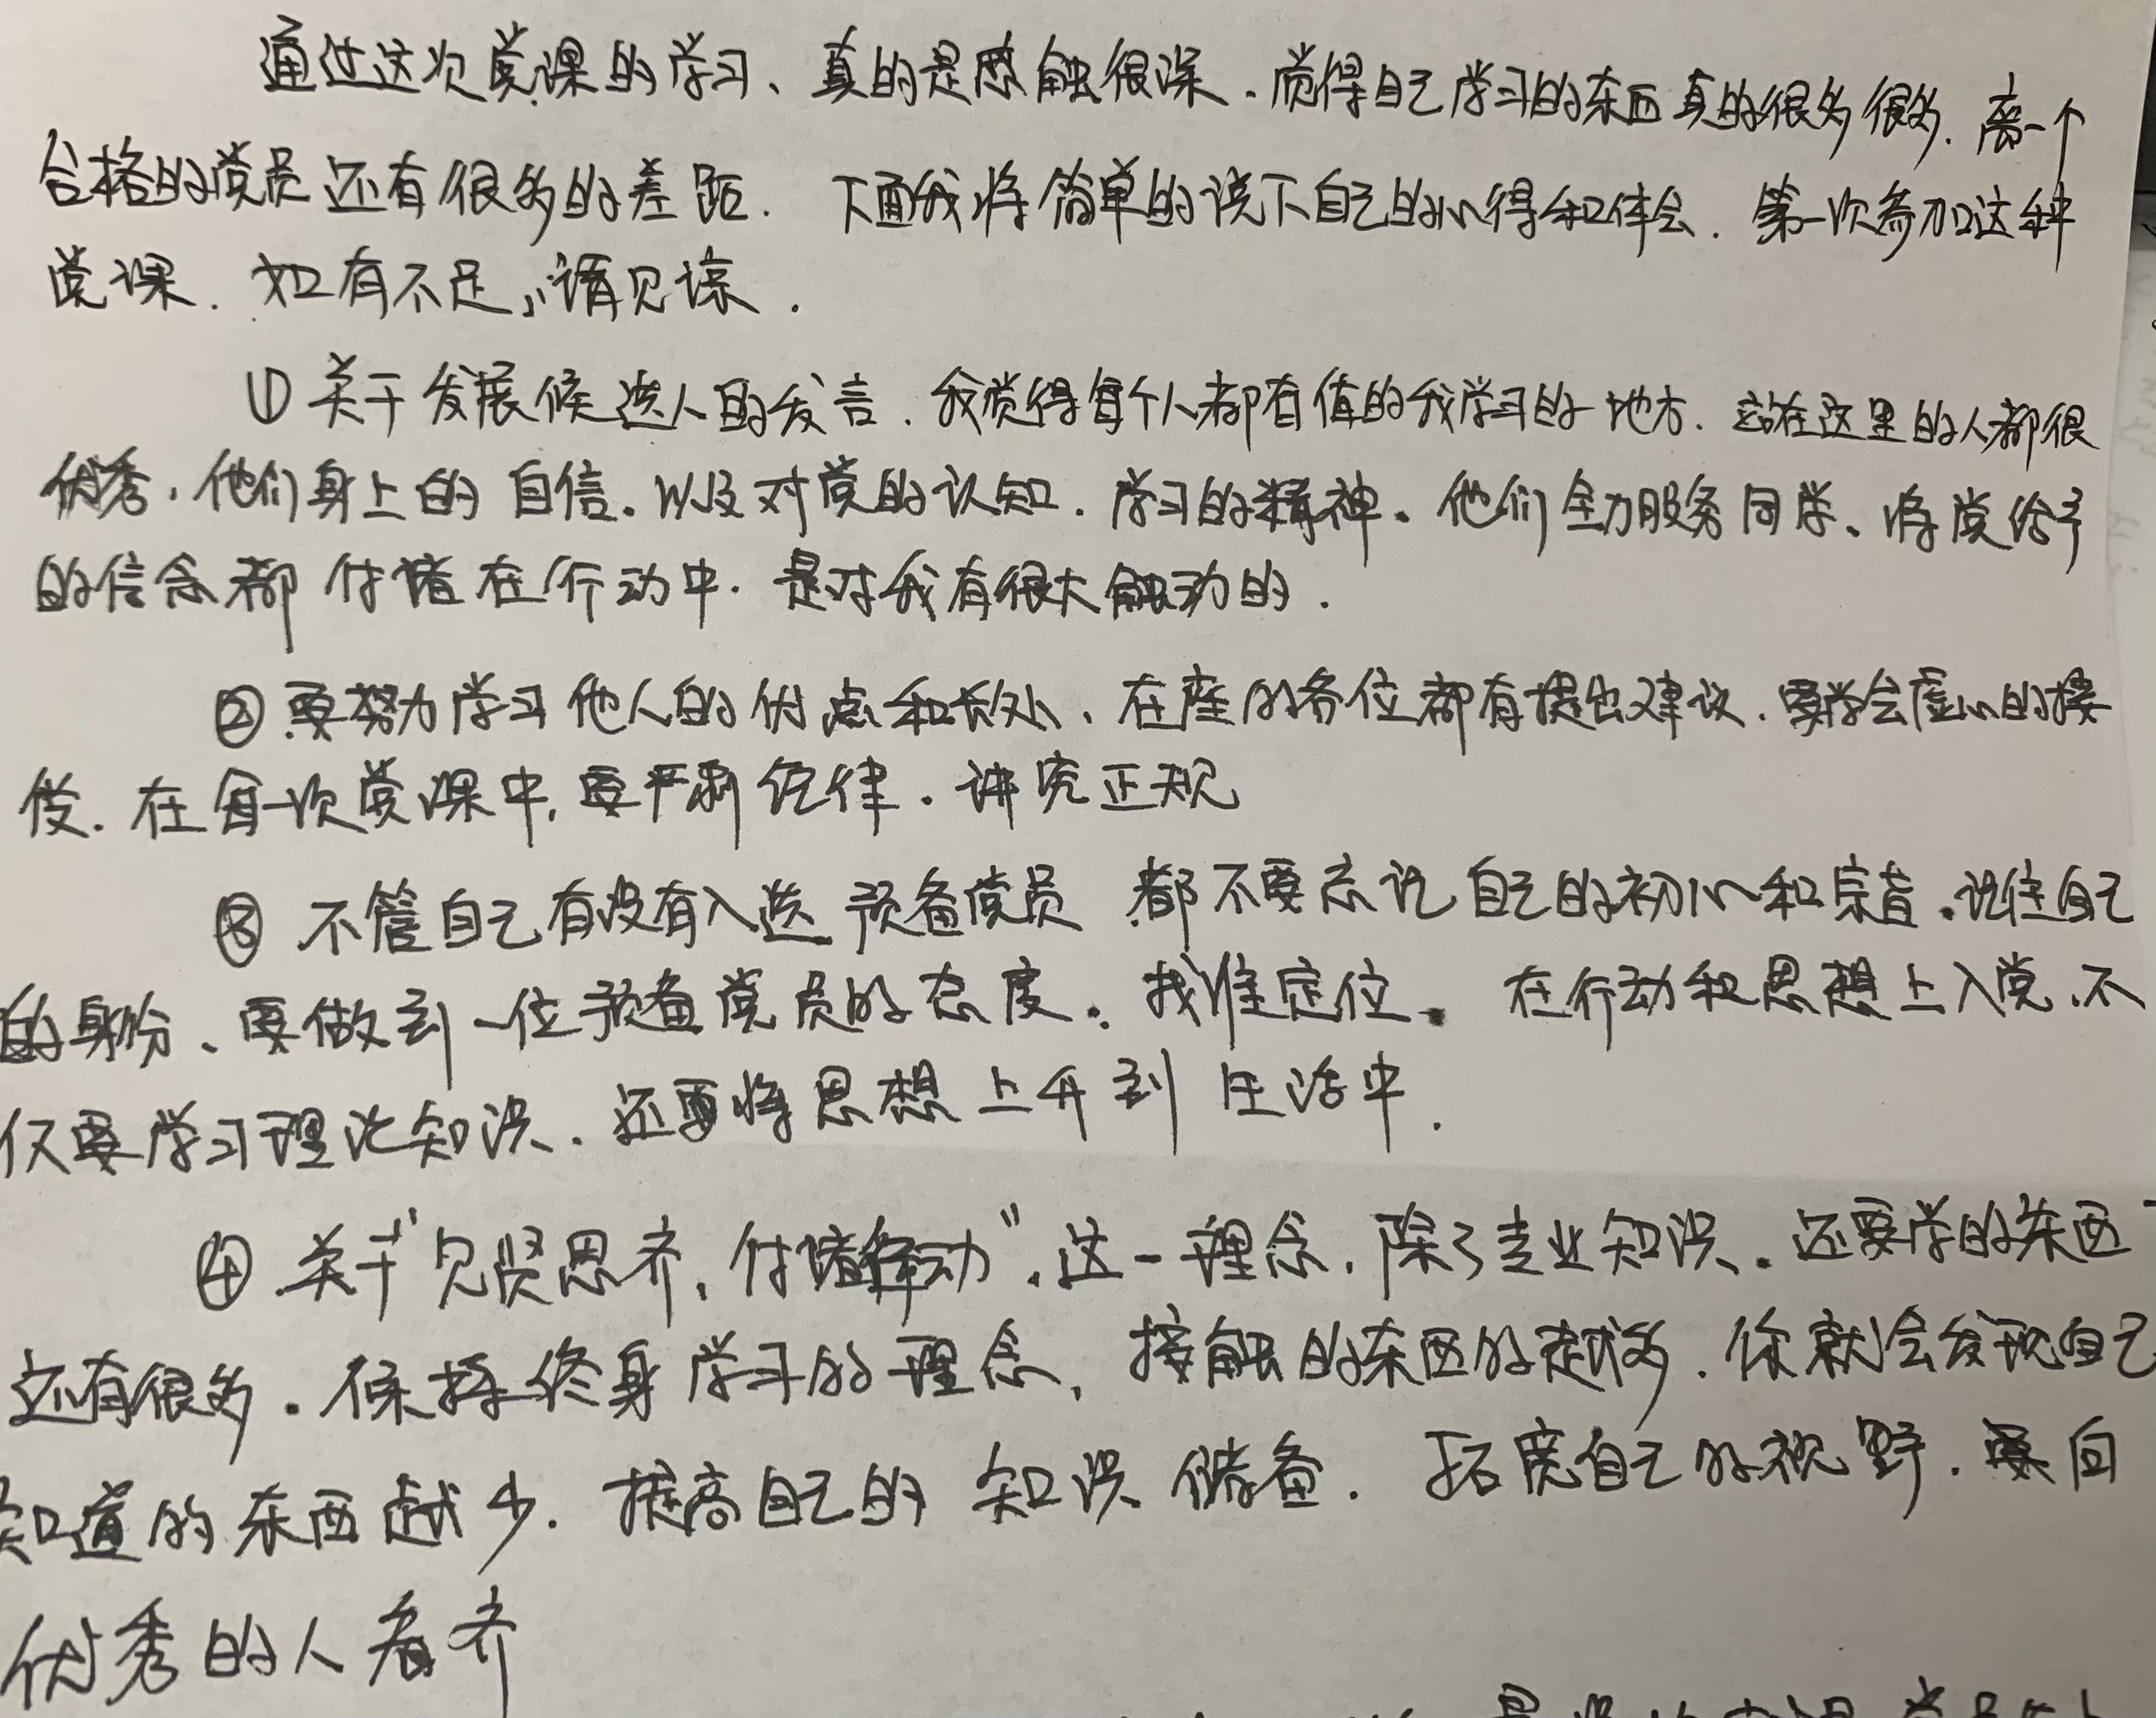 通过这次党课的学习、真的是感触很深.觉得自己学习的东西真的很多很多.离一个
合格的党员还有很多的差距. 下面我将简单的说下自己的心得和体会.第一次参加这种
党课.如有不足,请见谅.
① 关于发展候选人的发言.我觉得每个人都有值的我学习的地方.站在这里的人都很
优秀,他们身上的自信。以及对党的认知.学习的精神。他们全力服务同学、将党给予
的信念都付诸在行动中.是对我有很大触动的.
② 要努力学习他人的优点和长处、在座的各位都有提出建议.要学会虚心的接
受.在每一次党课中,要严肃纪律.讲究正规
③ 不管自己有没有入选预备党员 都不要忘记自己的初心和宗旨.记住自己
的身份、要做到一位预备党员的态度.找准定位。在行动和思想上入党、不
仅要学习理论知识.还要将思想上升到生活中.
④ 关于“见贤思齐,付诸行动”.这一理念.除了专业知识.还要学的东西
还有很多.保持终身学习的理念,接触的东西的越多.你就会发现自己
知道的东西越少.提高自己的知识储备.拓宽自己的视野.要向
优秀的人看齐